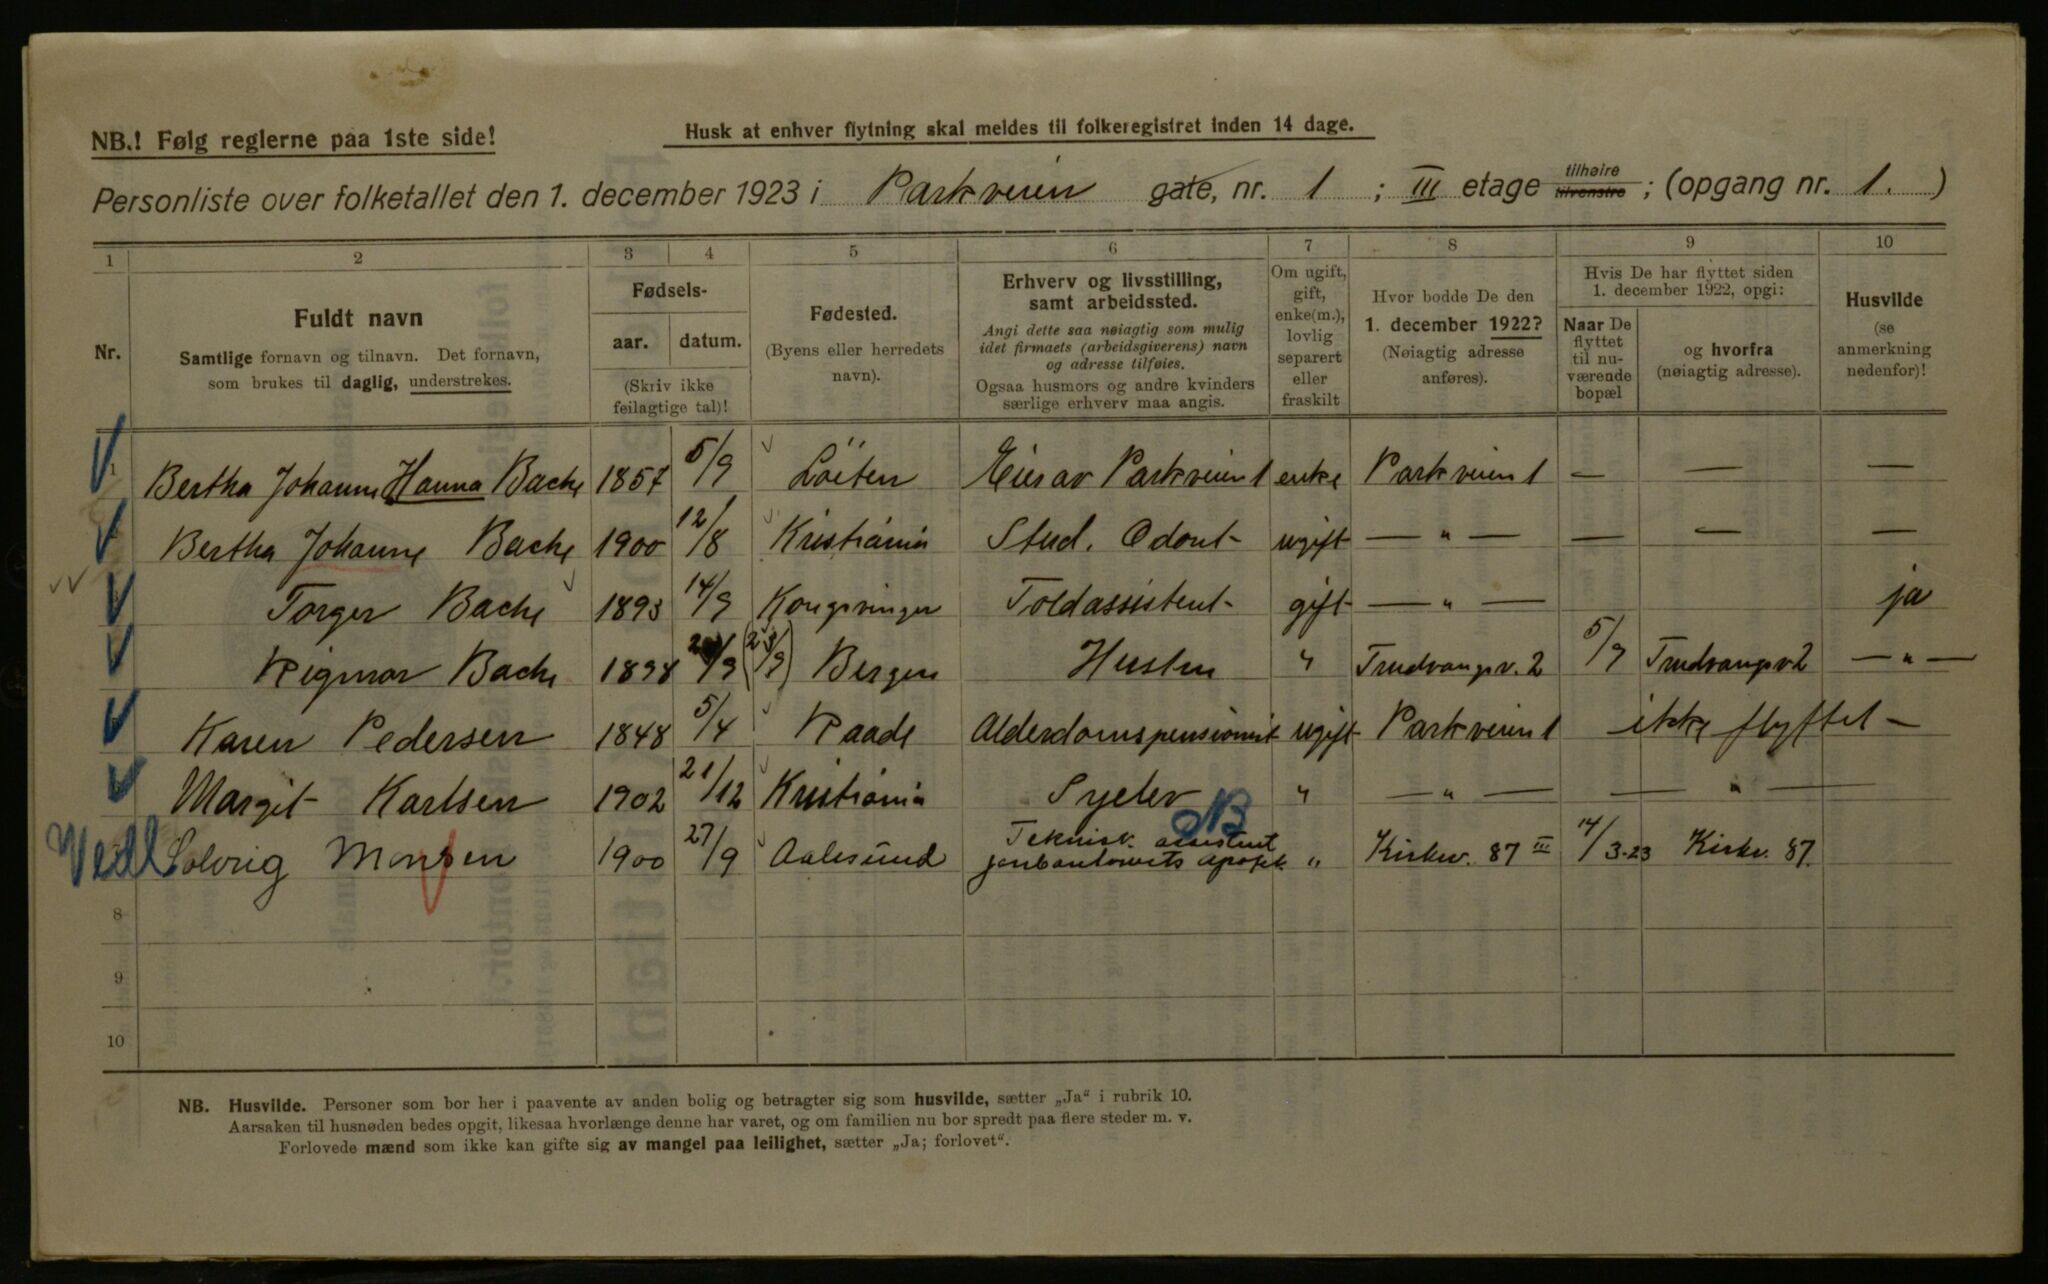 NB.! Følg reglerne paa 1ste side!
Husk at enhver flytning skal meldes til folkeregistret inden 14 dage.
Personliste over folketallet den 1. december 1923 i Parkveien gate, nr. 1 ; III etage tilhøire tilvenstre ; (opgang nr. 1. )
1 2 3 4 5 6 7 8 9 10
Nr.
Fuldt navn
Samtlige fornavn og tilnavn. Det fornavn,
som brukes til daglig, understrekes.
Fødsels-
aar. datum.
(Skriv ikke
feilagtige tal)!
Fødested.
(Byens eller herredets
navn).
Erhverv og livsstilling,
samt arbeidssted.
Angi dette saa nøiagtig som mulig
idet firmaets (arbeidsgiverens) navn
og adresse tilføies.
Ogsaa husmors og andre kvinders
særlige erhverv maa angis.
Om ugift,
gift,
enke(m.),
lovlig
separert
eller
fraskilt
Hvor bodde De den
1. december 1922?
(Nøiagtig adresse
anføres).
Hvis De har flyttet siden
1. december 1922, opgi:
Naar De
flyttet
til nu-
værende
bopæl
og hvorfra
(nøiagtig adresse).
Husvilde
(se
anmerkning
nedenfor)!
1 Bertha Johanne Hanna Bache 1857 5/9 Löiten Eier av Parkveien 1 enke Parkveien 1 — — —
Bertha Johanne Bache 1900 12/8 Kristiania Stud. Odont. ugift — " — — — —
Torger Bache 1893 14/9 Kongsvinger Toldassistent gift — " — ja
Rigmor Bache 1898 (23/9) Bergen Husten " Trudvangsv. 2 5/9 Trudvangsv 2 — " —
Karen Pedersen 1848 5/4 Raade Alderdomspensionist ugift Parkveien 1 ikke flyttet —
Margit Karlsen 1902 21/12 Kristiania Syelev " — " — — " —
NB
Vedl Solveig Monsen 1900 27/9 Aalesund Teknisk assistent " Kirkev. 87 III 14/3-23 Kirkev. 87.
8
9
10
NB. Husvilde. Personer som bor her i paavente av anden bolig og betragter sig som husvilde, sætter „Ja“ i rubrik 10.
Aarsaken til husnøden bedes opgit, likesaa hvorlænge denne har varet, og om familien nu bor spredt paa flere steder m. v.
Forlovede mænd som ikke kan gifte sig av mangel paa leilighet, sætter „Ja; forlovet“.